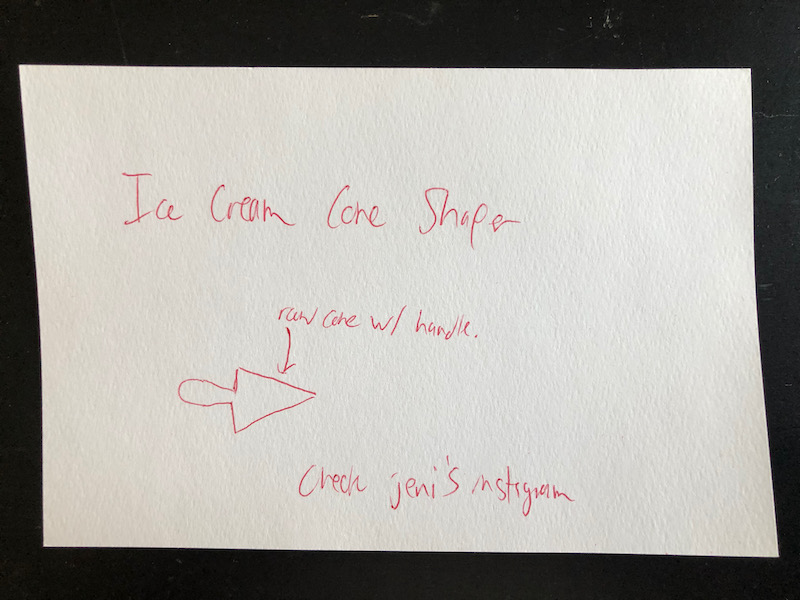 Ice Cream Cone Shaper
raw cone w/ handle.
Check jeni's nstigram